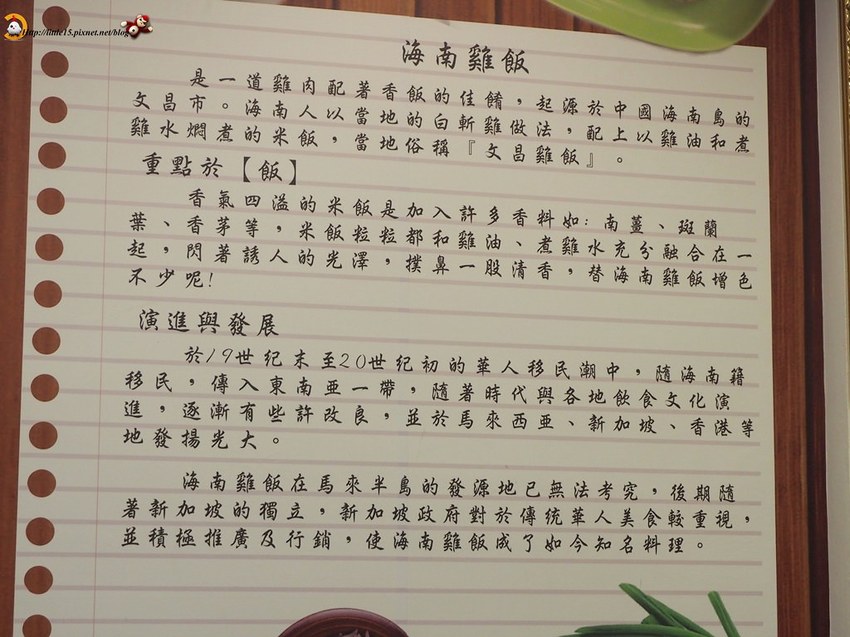 http://little15.pixnet.net/blog
海南雞飯
是一道雞肉配著香飯的佳餚，起源於中國海南島的
文昌市。海南人以當地的白斬雞做法，配上以雞油和煮
雞水燜煮的米飯，當地俗稱『文昌雞飯』。
重點於【飯】
香氣四溢的米飯是加入許多香料如:南薑、斑蘭
葉、香茅等，米飯粒粒都和雞油、煮雞水充分融合在一
起，閃著誘人的光澤，撲鼻一股清香，替海南雞飯增色
不少呢!
演進與發展
於19世紀末至20世紀初的華人移民潮中，隨海南籍
移民，傳入東南亞一帶，隨著時代與各地飲食文化演
進，逐漸有些許改良，並於馬來西亞、新加坡、香港等
地發揚光大。
海南雞飯在馬來半島的發源地已無法考究，後期隨
著新加坡的獨立，新加坡政府對於傳統華人美食較重視，
並積極推廣及行銷，使海南雞飯成了如今知名料理。